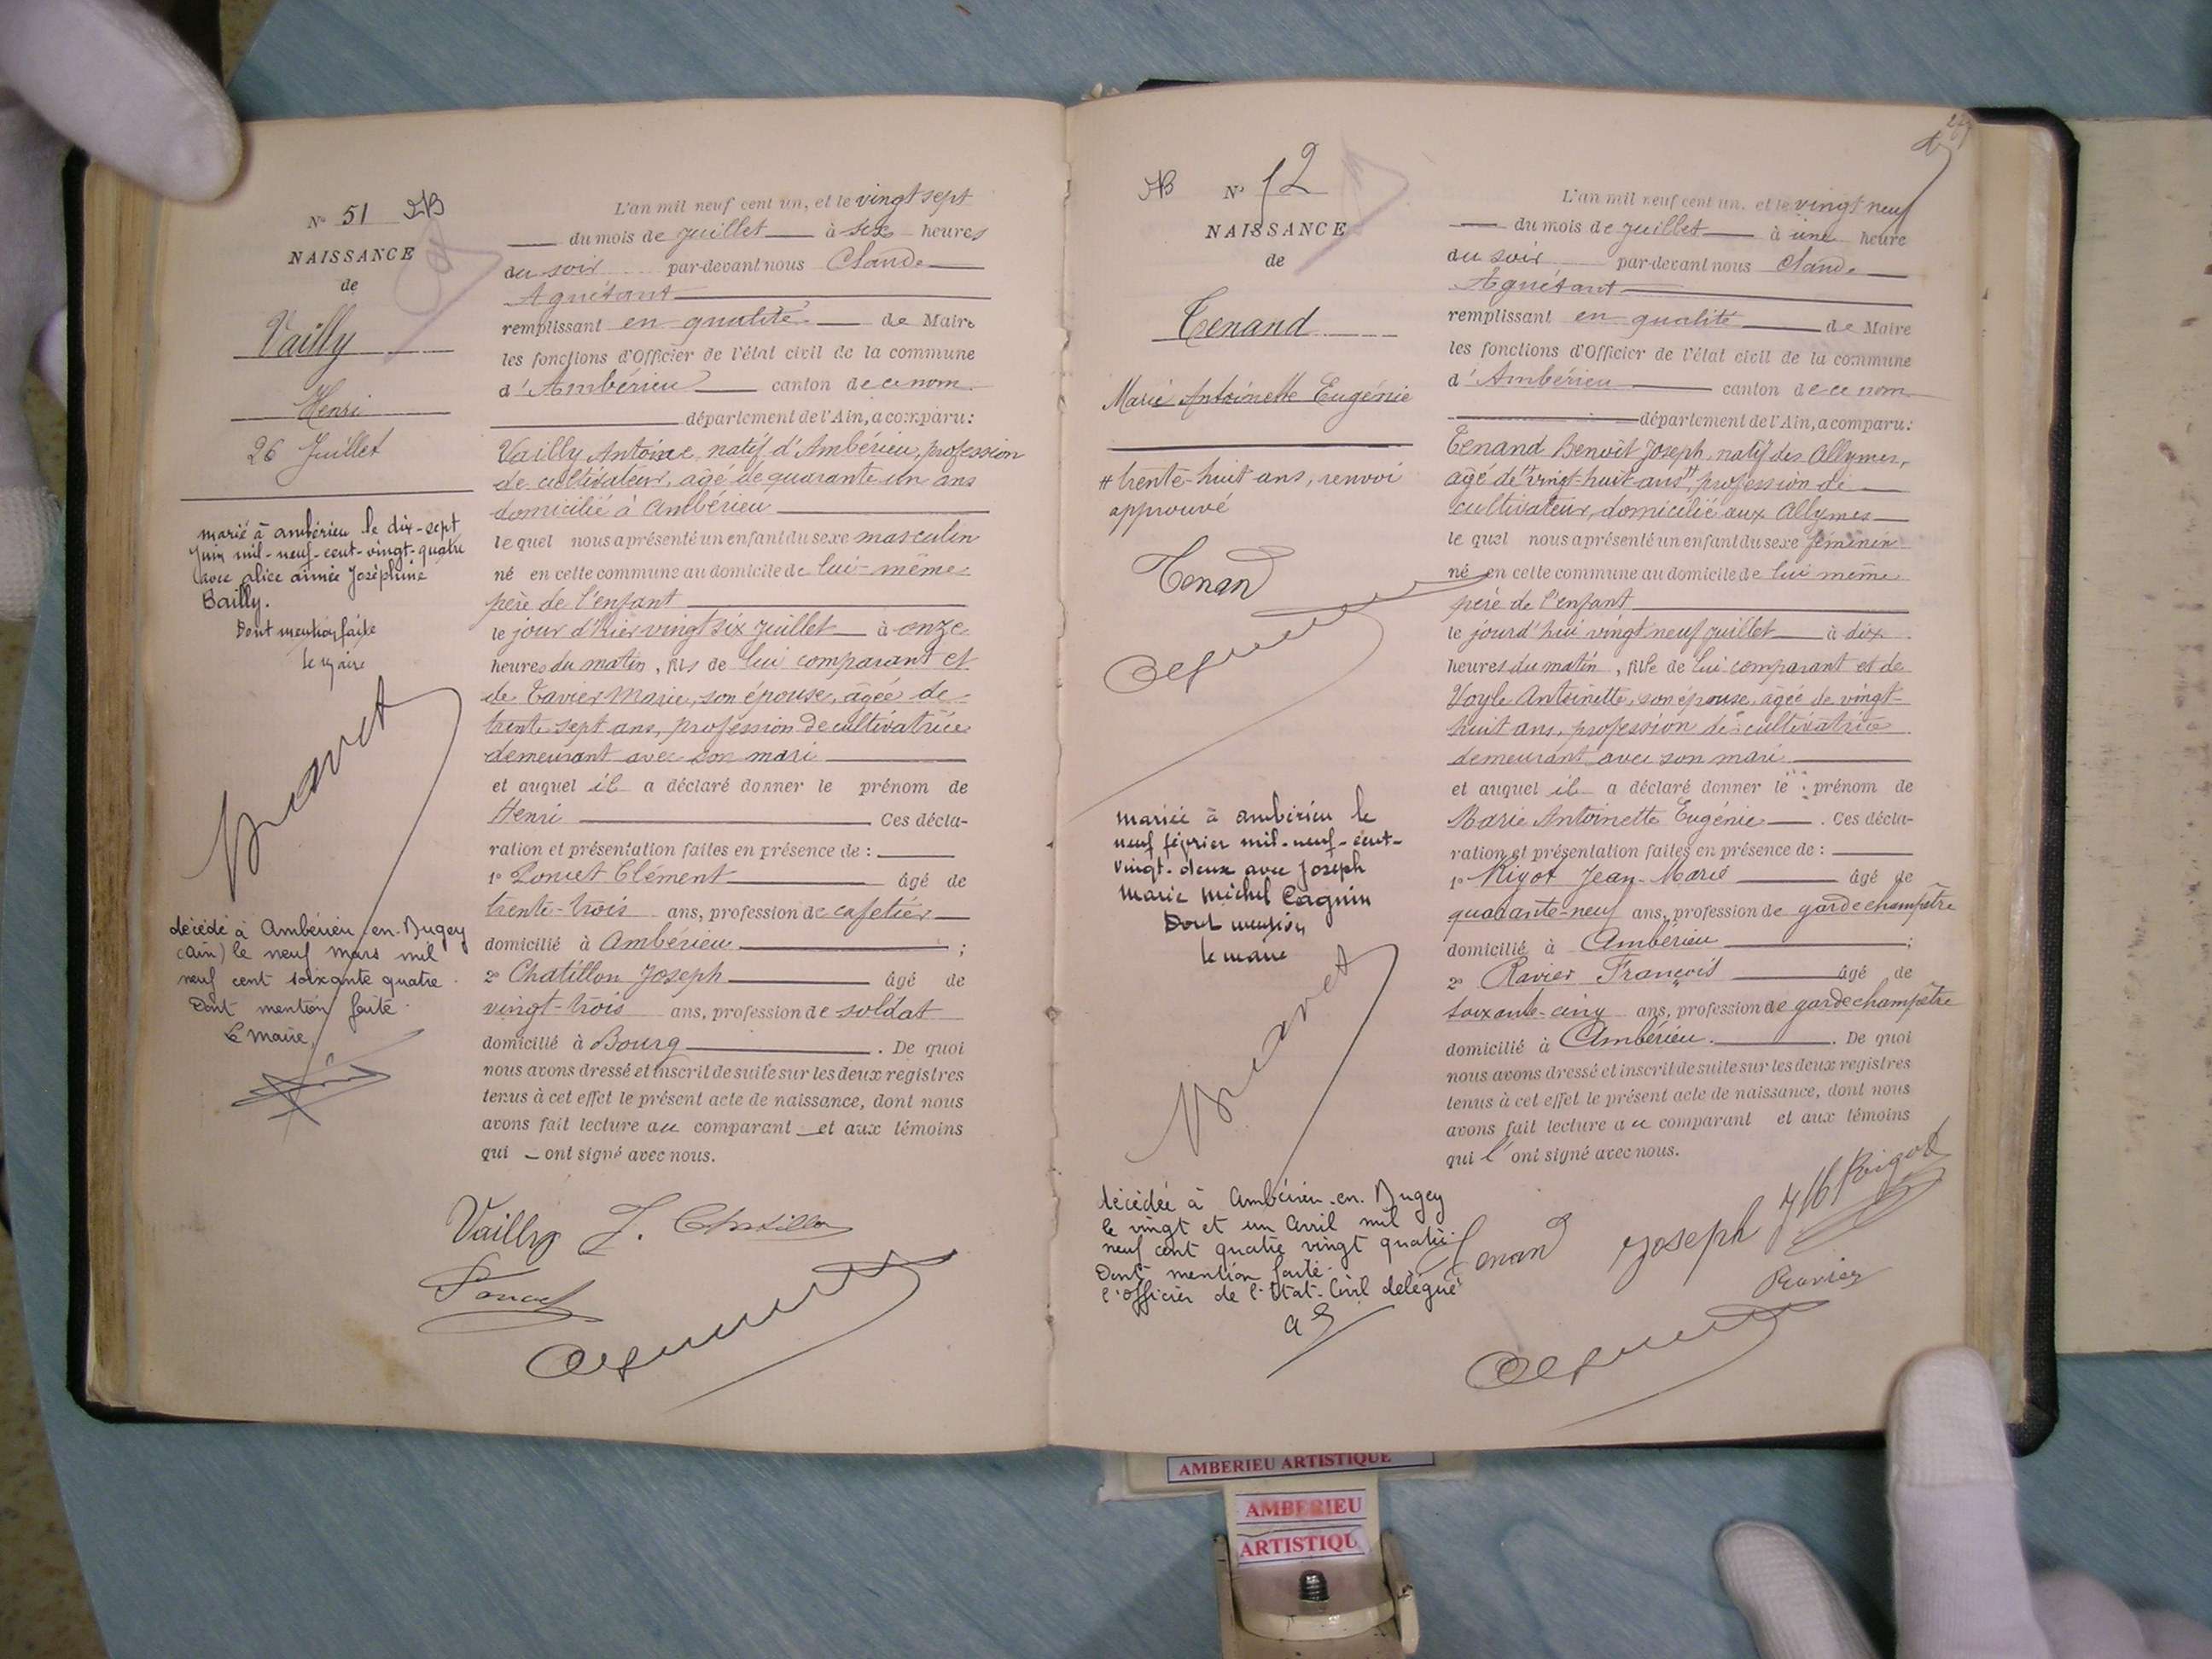 N° 51
NAISSANCE
de
Vailly
Henri
26 Juillet
marié à ambérieu le dix-sept
juin mil-neuf-cent-vingt-quatre
avec alice aimée Joséphine
Bailly.
Dont mention faite
le maire
décédé à Ambérieu-en-Bugey
(Ain) le neuf mars mil
neuf cent soixante quatre.
Dont mention faite.
Le Maire,
L'an mil neuf cent un, et le vingt sept
du mois de Juillet à six heures
du soir par-devant nous Claude
Aguétant
remplissant en qualité de Maire
les fonctions d'Officier de l'état civil de la commune
d'Ambérieu canton de ce nom
département de l'Ain, a comparu:
Vailly Antoine, natif d'Ambérieu, profession
de cultivateur, âgé de quarante un ans
domicilié à Ambérieu
lequel nous a présenté un enfant du sexe masculin
né en cette commune au domicile de lui-même
père de l'enfant
le jour d'hier vingt six Juillet à onze
heures du matin, fils de lui comparant et
de Tavier Marie, son épouse, âgée de
trente sept ans, profession de cultivatrice
demeurant avec son mari
et auquel il a déclaré donner le prénom de
Henri Ces décla-
ration et présentation faites en présence de :
1° Poncet Clément âgé de
trente-trois ans, profession de cafetier
domicilié à Ambérieu ;
2° Chatillon Joseph âgé de
vingt-trois ans, profession de soldat
domicilié à Bourg . De quoi
nous avons dressé et inscrit de suite sur les deux registres
tenus à cet effet le présent acte de naissance, dont nous
avons fait lecture au comparant et aux témoins
qui ont signé avec nous.
Vailly J. Chatillon
Poncet
N° 52
NAISSANCE
de
Tenand
Marie Antoinette Eugénie
# trente-huit ans, renvoi
approuvé
Tenand
mariée à ambérieu le
neuf février mil-neuf-cent-
vingt-deux avec Joseph
Marie Michel Cagnin
Dont mention
le maire
décédée à Ambérieu-en-Bugey
le vingt et un Avril mil
neuf cent quatre vingt quatre.
Dont mention faite.
l'officier de l'Etat-Civil délégué
L'an mil neuf cent un, et le vingt neuf
du mois de Juillet à une heure
du soir par-devant nous Claude
Aguétant
remplissant en qualité de Maire
les fonctions d'Officier de l'état civil de la commune
d'Ambérieu canton de ce nom
département de l'Ain, a comparu:
Tenand Benoît Joseph, natif des Allymes,
âgé de vingt-huit ans #, profession de
cultivateur, domicilié aux Allymes
lequel nous a présenté un enfant du sexe féminin
né en cette commune au domicile de lui même
père de l'enfant
le jourd'hui vingt neuf juillet à dix
heures du matin, fille de lui comparant et de
Voyle Antoinette, son épouse, âgée de vingt-
huit ans, profession de cultivatrice
demeurant avec son mari
et auquel il a déclaré donner le prénom de
Marie Antoinette Eugénie . Ces décla-
ration et présentation faites en présence de :
1° Rigot Jean-Marie âgé de
quarante-neuf ans, profession de garde champêtre
domicilié à Ambérieu ;
2° Ravier François âgé de
soixante-cinq ans, profession de garde champêtre
domicilié à Ambérieu. . De quoi
nous avons dressé et inscrit de suite sur les deux registres
tenus à cet effet le présent acte de naissance, dont nous
avons fait lecture au comparant et aux témoins
qui l'ont signé avec nous.
Tenand Joseph Rigot
Ravier
AMBERIEU ARTISTIQUE
AMBERIEU
ARTISTIQU